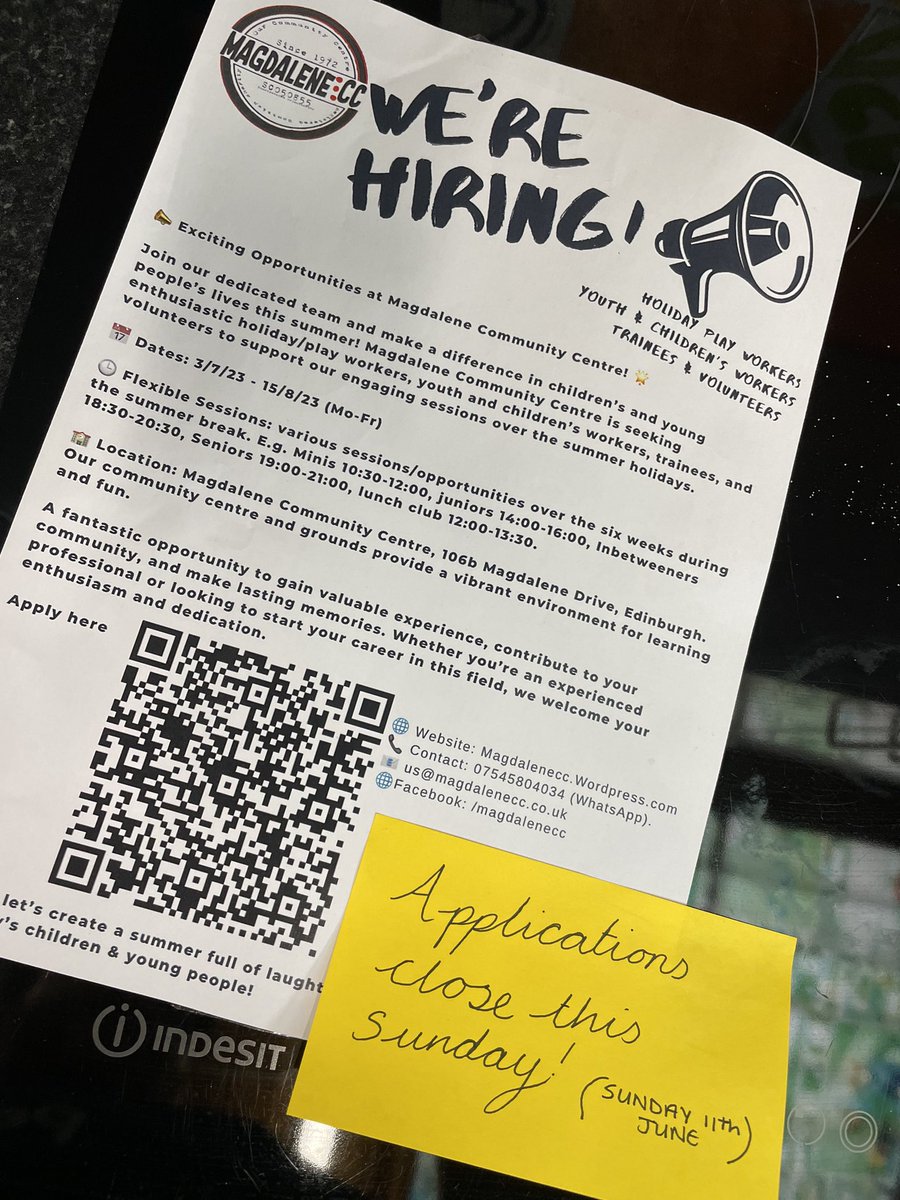 Our Community Centre
Since 1972
MAGDALENE:CC
SC050855
WE'RE
HIRING!
HOLIDAY PLAY WORKERS
YOUTH & CHILDREN'S WORKERS
TRAINEES & VOLUNTEERS
📣 Exciting Opportunities at Magdalene Community Centre! 🌟
Join our dedicated team and make a difference in children's and young
people's lives this summer! Magdalene Community Centre is seeking
enthusiastic holiday/play workers, youth and children's workers, trainees, and
volunteers to support our engaging sessions over the summer holidays.
📅 Dates: 3/7/23 - 15/8/23 (Mo-Fr)
🕒 Flexible Sessions: various sessions/opportunities over the six weeks during
the summer break. E.g. Minis 10:30-12:00, juniors 14:00-16:00, Inbetweeners
18:30-20:30, Seniors 19:00-21:00, lunch club 12:00-13:30.
🏫 Location: Magdalene Community Centre, 106b Magdalene Drive, Edinburgh.
Our community centre and grounds provide a vibrant environment for learning
and fun.
A fantastic opportunity to gain valuable experience, contribute to your
community, and make lasting memories. Whether you're an experienced
professional or looking to start your career in this field, we welcome your
enthusiasm and dedication.
Apply here
🌐 Website: Magdalenecc.Wordpress.com
📞 Contact: 07545804034 (WhatsApp).
📧 us@magdalenecc.co.uk
🌐 Facebook: /magdalenecc
let's create a summer full of laught
y's children & young people!
indesit
Applications
close this
Sunday!
(SUNDAY 11th
JUNE)